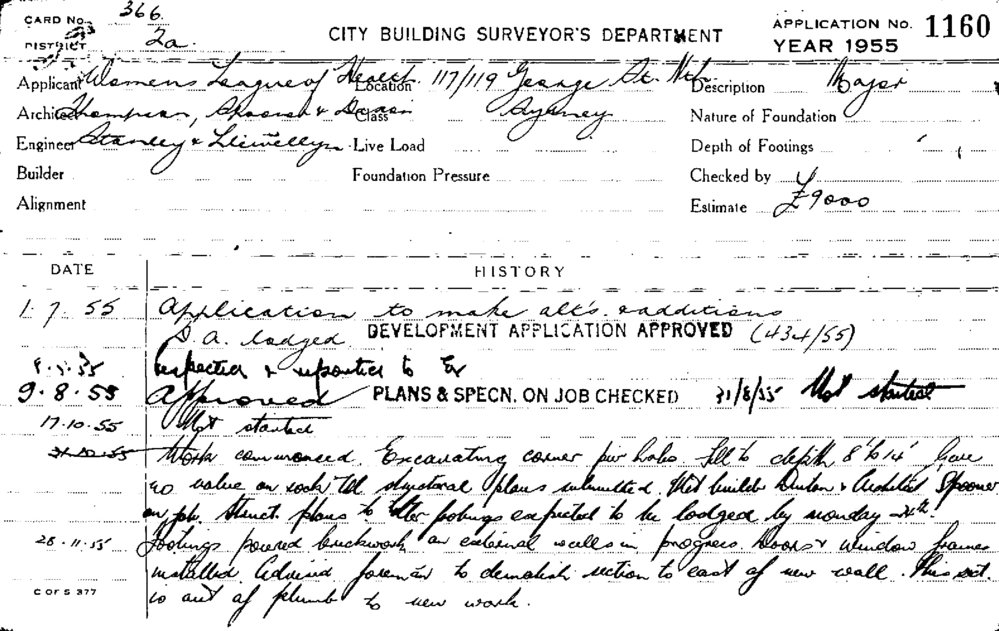 CARD No. 366.
DISTRICT 2a.
CITY BUILDING SURVEYOR'S DEPARTMENT
APPLICATION No. 1160
YEAR 1955
Applicant Womens League of Health Location 117/119 George St. Nth. Description Major
Architect Thompson, Spooner & Class Sydney Nature of Foundation
Engineer Stanley & Llewellyn Live Load Depth of Footings
Builder Foundation Pressure Checked by
Alignment Estimate £9000
DATE HISTORY
1.7.55 Application to make alts. & additions
D.A. lodged DEVELOPMENT APPLICATION APPROVED (434/55)
8.55 Inspected & reported to
9.8.55 Approved PLANS & SPECN. ON JOB CHECKED 31/8/55 Not started
17.10.55 Not started
21.10.55 Work commenced. Excavating corner pier holes. Fill to depth 8' to 14'. Gave
no value on rock till structural plans submitted. Met builder & Architect Spooner
on job. Struct. plans to alter footings expected to be lodged by monday 24th.
28.11.55 Footings poured brickwork on external walls in progress. Doors & window frames
installed. Advised foreman to demolish section to east of new wall. This sect.
is out of plumb to new work.
C OF S 377